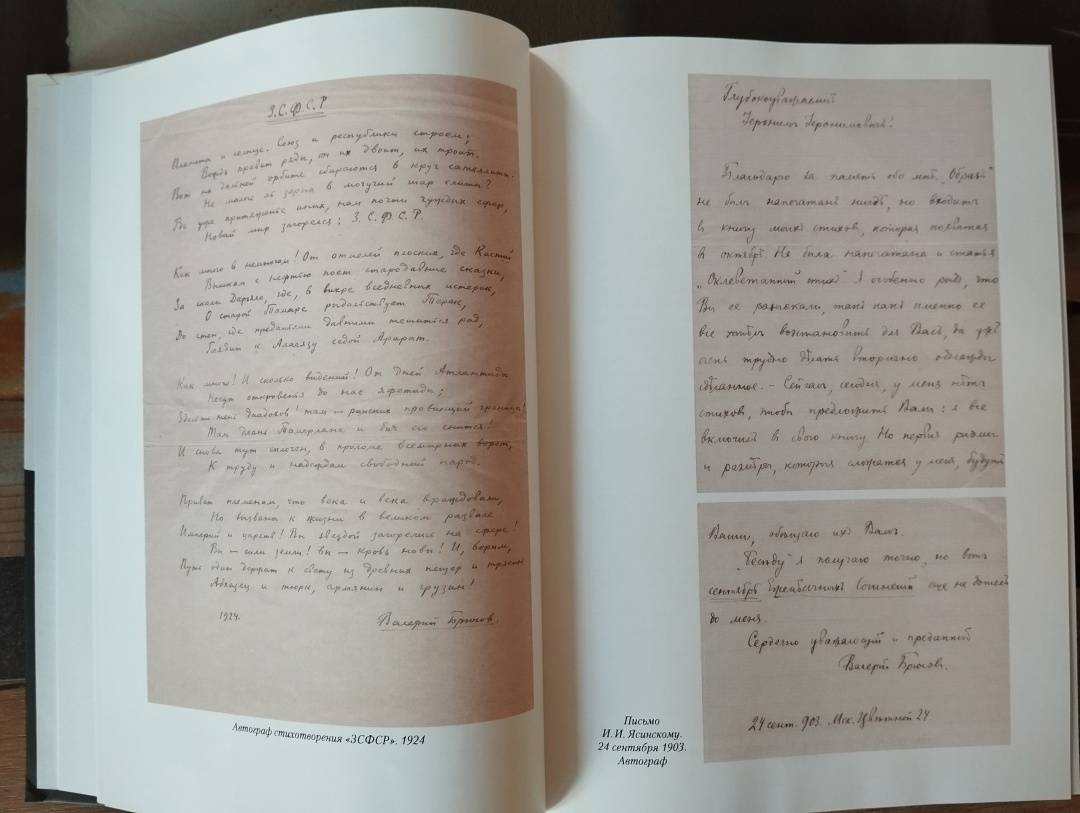 З.С.Ф.С.Р
Планета и солнце. Союз и республики строем;
Вождь правит ряды, он их двоит, их троит.
Вот на дальней орбите сбираются в круг сателлиты.
Не малые ль зерна в могучий шар слиты?
Где чуя притяженье иных, нам почти чуждых сфер,
Новый мир загорелся: З.С.Ф.С.Р.
Как много в немногом! От отмелей плоских, где Каспий
Вышкам с нефтью поет стародавние сказки,
За скалы Дарьяла, где, в вихре вседневных истерик,
О старой Тамаре рыдальствует Терек,
До стен, где преданьями давними тешиться рад,
Глядит к Алагязу седой Арарат.
Как много! И сколько видений! От дней Атлантиды
Несут откровенья до нас яфетиды;
Здесь тени диадохов! там — римских провинций границы!
Там длань Тамерлана и бич его снится!
И снова тут сплочен, в проломе всемирных ворот,
К труду и надеждам свободный народ.
Привет племенам, что века и века враждовали,
Но вызваны к жизни в великом развале
Империй и царств! Вы звездой загорелись на сфере!
Вы — соли земли! вы — кровь новы! И, верим,
Путь один держат к свету из древних пещер и трясин
Абхазец и тюрк, армянин и грузин!
1924.
Валерий Брюсов.
Автограф стихотворения «ЗСФСР». 1924
Глубокоуважаемый
Іеронимъ Іеронимовичъ!
Благодарю за память обо мнѣ. „Образъ"
не былъ напечатанъ нигдѣ, но входитъ
въ книгу моихъ стиховъ, которая появится
въ октябрѣ. Не была напечатана и статья
„Оклеветанный стихъ". Я особенно радъ, что
Вы ее разыскали, такъ какъ именно ее
все хотѣлъ возстановить для Васъ, да ужъ
очень трудно дѣлать вторично однажды
сдѣланное. — Сейчасъ, сегодня, у меня нѣтъ
стиховъ, чтобы предложить Вамъ: я все
включилъ въ свою книгу. Но первыя риѳмы
и размѣры, которыя сложатся у меня, будутъ
Ваши, обѣщаю ихъ Вамъ.
„Бесѣду" я получаю точно, но вотъ
сентябрь Ежемѣсячныхъ Сочиненій еще не дошелъ
до меня.
Сердечно уважающій и преданный
Валерій Брюсовъ.
24 сент. 903. Мск. Цвѣтной 24.
Письмо
И. И. Ясинскому.
24 сентября 1903.
Автограф